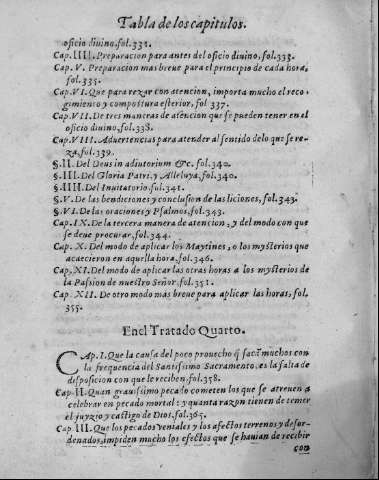 Tabla de los capitulos.
oficio diuino. fol. 331.
Cap. IIII. Preparacion para antes del oficio diuino, fol. 333.
Cap. V. Preparacion mas breue para el principio de cada hora,
fol. 335.
Cap. VI. Que para rezar con atencion, importa mucho el reco-
gimiento y compostura esterior, fol 337.
Cap. VII. De tres maneras de atencion que se pueden tener en el
oficio diuino, fol. 338.
Cap. VIII. Aduertencias para atender al sentido de lo que se re-
za. fol. 339.
§. II. Del Deus in adiutorium &c. fol. 340.
§. III. Del Gloria Patri, y Alleluya, fol. 340.
§. IIII. Del Inuitatorio. fol. 341.
§. V. De las bendiciones y conclusion de las liciones, fol. 343.
§. VI. De las oraciones y Psalmos, fol. 343.
Cap. IX. De la tercera manera de atencion, y del modo con que
se deue procurar. fol. 344.
Cap. X. Del modo de aplicar los Maytines, o los mysterios que
acaecieron en aquella hora. fol. 346.
Cap. XI. Del modo de aplicar las otras horas a los mysterios de
la Passion de nuestro Señor. fol. 351.
Cap. XII. De otro modo mas breue para aplicar las horas, fol.
355.
En el Tratado Quarto.
CAp. I. Que la causa del poco prouecho q̃ sacã muchos con
la frequencia del Santissimo Sacramento, es la falta de
disposicion con que le reciben. fol. 358.
Cap. II. Quan grauissimo pecado cometen los que se atreuen a
celebrar en pecado mortal: y quanta razon tienen de temer
el juyzio y castigo de Dios. fol. 365.
Cap. III. Que los pecados veniales y los afectos terrenos y desor-
denados, impiden mucho los efectos que se hauian de recibir
con